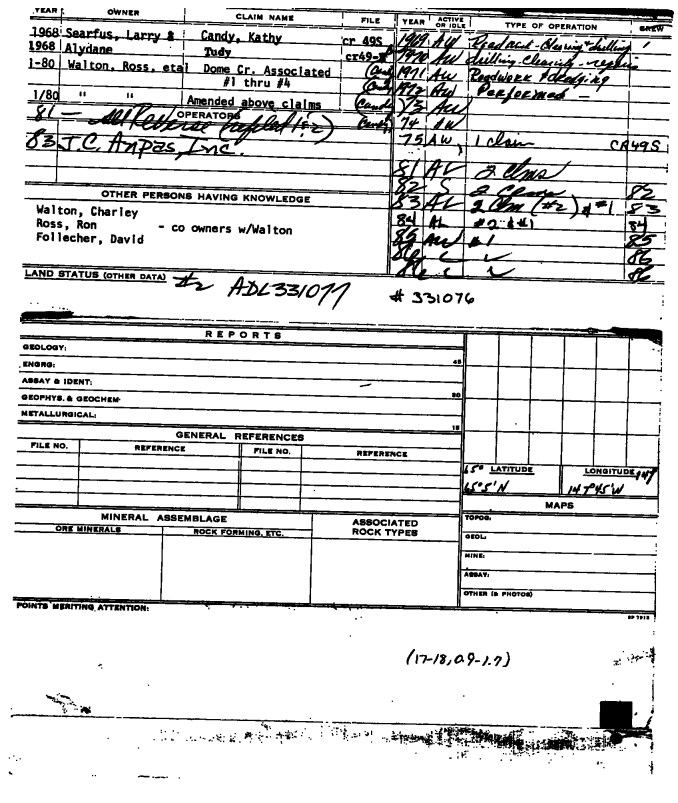 YEAR OWNER CLAIM NAME FILE YEAR ACTIVE OR IDLE TYPE OF OPERATION CREW
1968 Searfus, Larry & Candy, Kathy cr 49S 1969 AW Road and clearing & drilling 1
1968 Alydane Tudy cr49-S 1970 AW drilling clearing
1-80 Walton, Ross, etal Dome Cr. Associated 1971 AW Roadwork
#1 thru #4 1972 AW Performed -
1/80 " " Amended above claims 73 AW
OPERATORS 74 AW
81 -
83 J.C. Anpas, Inc. 75 AW, 1 claim CR49S
81 AL 2 Clms
82 S 2 Clms 82
OTHER PERSONS HAVING KNOWLEDGE 83 AL 2 Clm (#2) & #1 83
Walton, Charley 84 AL #2 & #1 84
Ross, Ron - co owners w/Walton 85 AW #1 85
Follecher, David 86 86
86 86
LAND STATUS (OTHER DATA) #2 ADL331077 # 331076
REPORTS
GEOLOGY:
45
ENGRG:
ASSAY & IDENT:
GEOPHYS. & GEOCHEM.
30
METALLURGICAL:
15
GENERAL REFERENCES
FILE NO. REFERENCE FILE NO. REFERENCE
65° LATITUDE LONGITUDE 147
65°5'N 147°45'W
MAPS
MINERAL ASSEMBLAGE ASSOCIATED ROCK TYPES
ORE MINERALS ROCK FORMING, ETC.
TOPOG:
GEOL:
MINE:
ASSAY:
OTHER (& PHOTOS)
POINTS MERITING ATTENTION:
(17-18, 0.9-1.7)